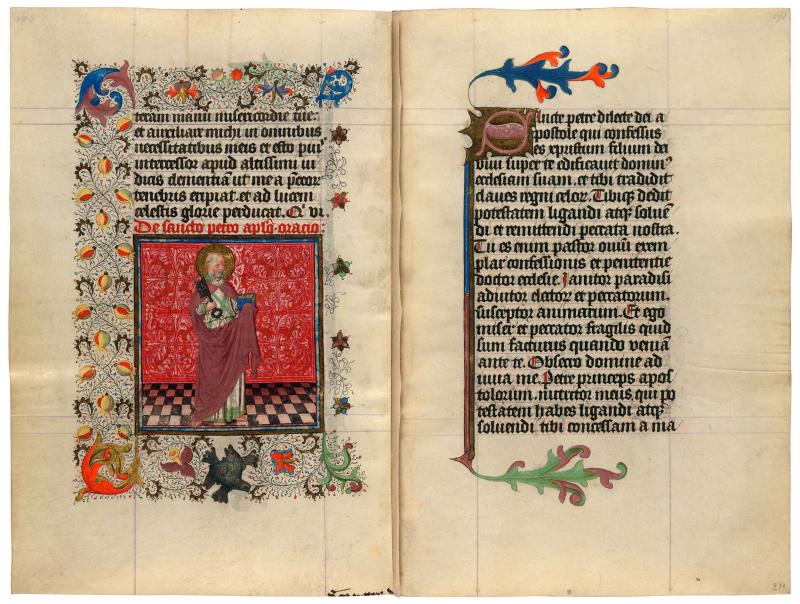 teram manū misericordie tue:
et auxiliare michi in omnibus
necessitatibus meis et esto pius
intercessor apud altissimi iu
dicis clementiā ut me a peccator
tenebris eripiat. et ad lucem
celestis glorie perducat. Qͥ vi.
De sancto petro apl̄o. oracio:
Sancte petre dilecte dei a
postole qui confessus
es cristum filium dei
vivi super te edificavit domin9
ecclesiam suam. et tibi tradidit
claves regni celoꝝ. Tibiqꝫ dedit
potestatem ligandi atqꝫ solven
di et remittendi peccata nostra.
Tu es enim pastor oviū exem
plar confessionis et penitentie
doctor ecclesie. Janitor paradisi
adiutor electoꝝ et peccatorum.
susceptor animarum. Et ego
miser et peccator fragilis quid
sum facturus quando veniā
ante te. Obsecro domine ad
iuva me. Petre princeps apos
tolorum. nutritor meus. qui po
testatem habes ligandi atqꝫ
solvendi tibi concessam a ma